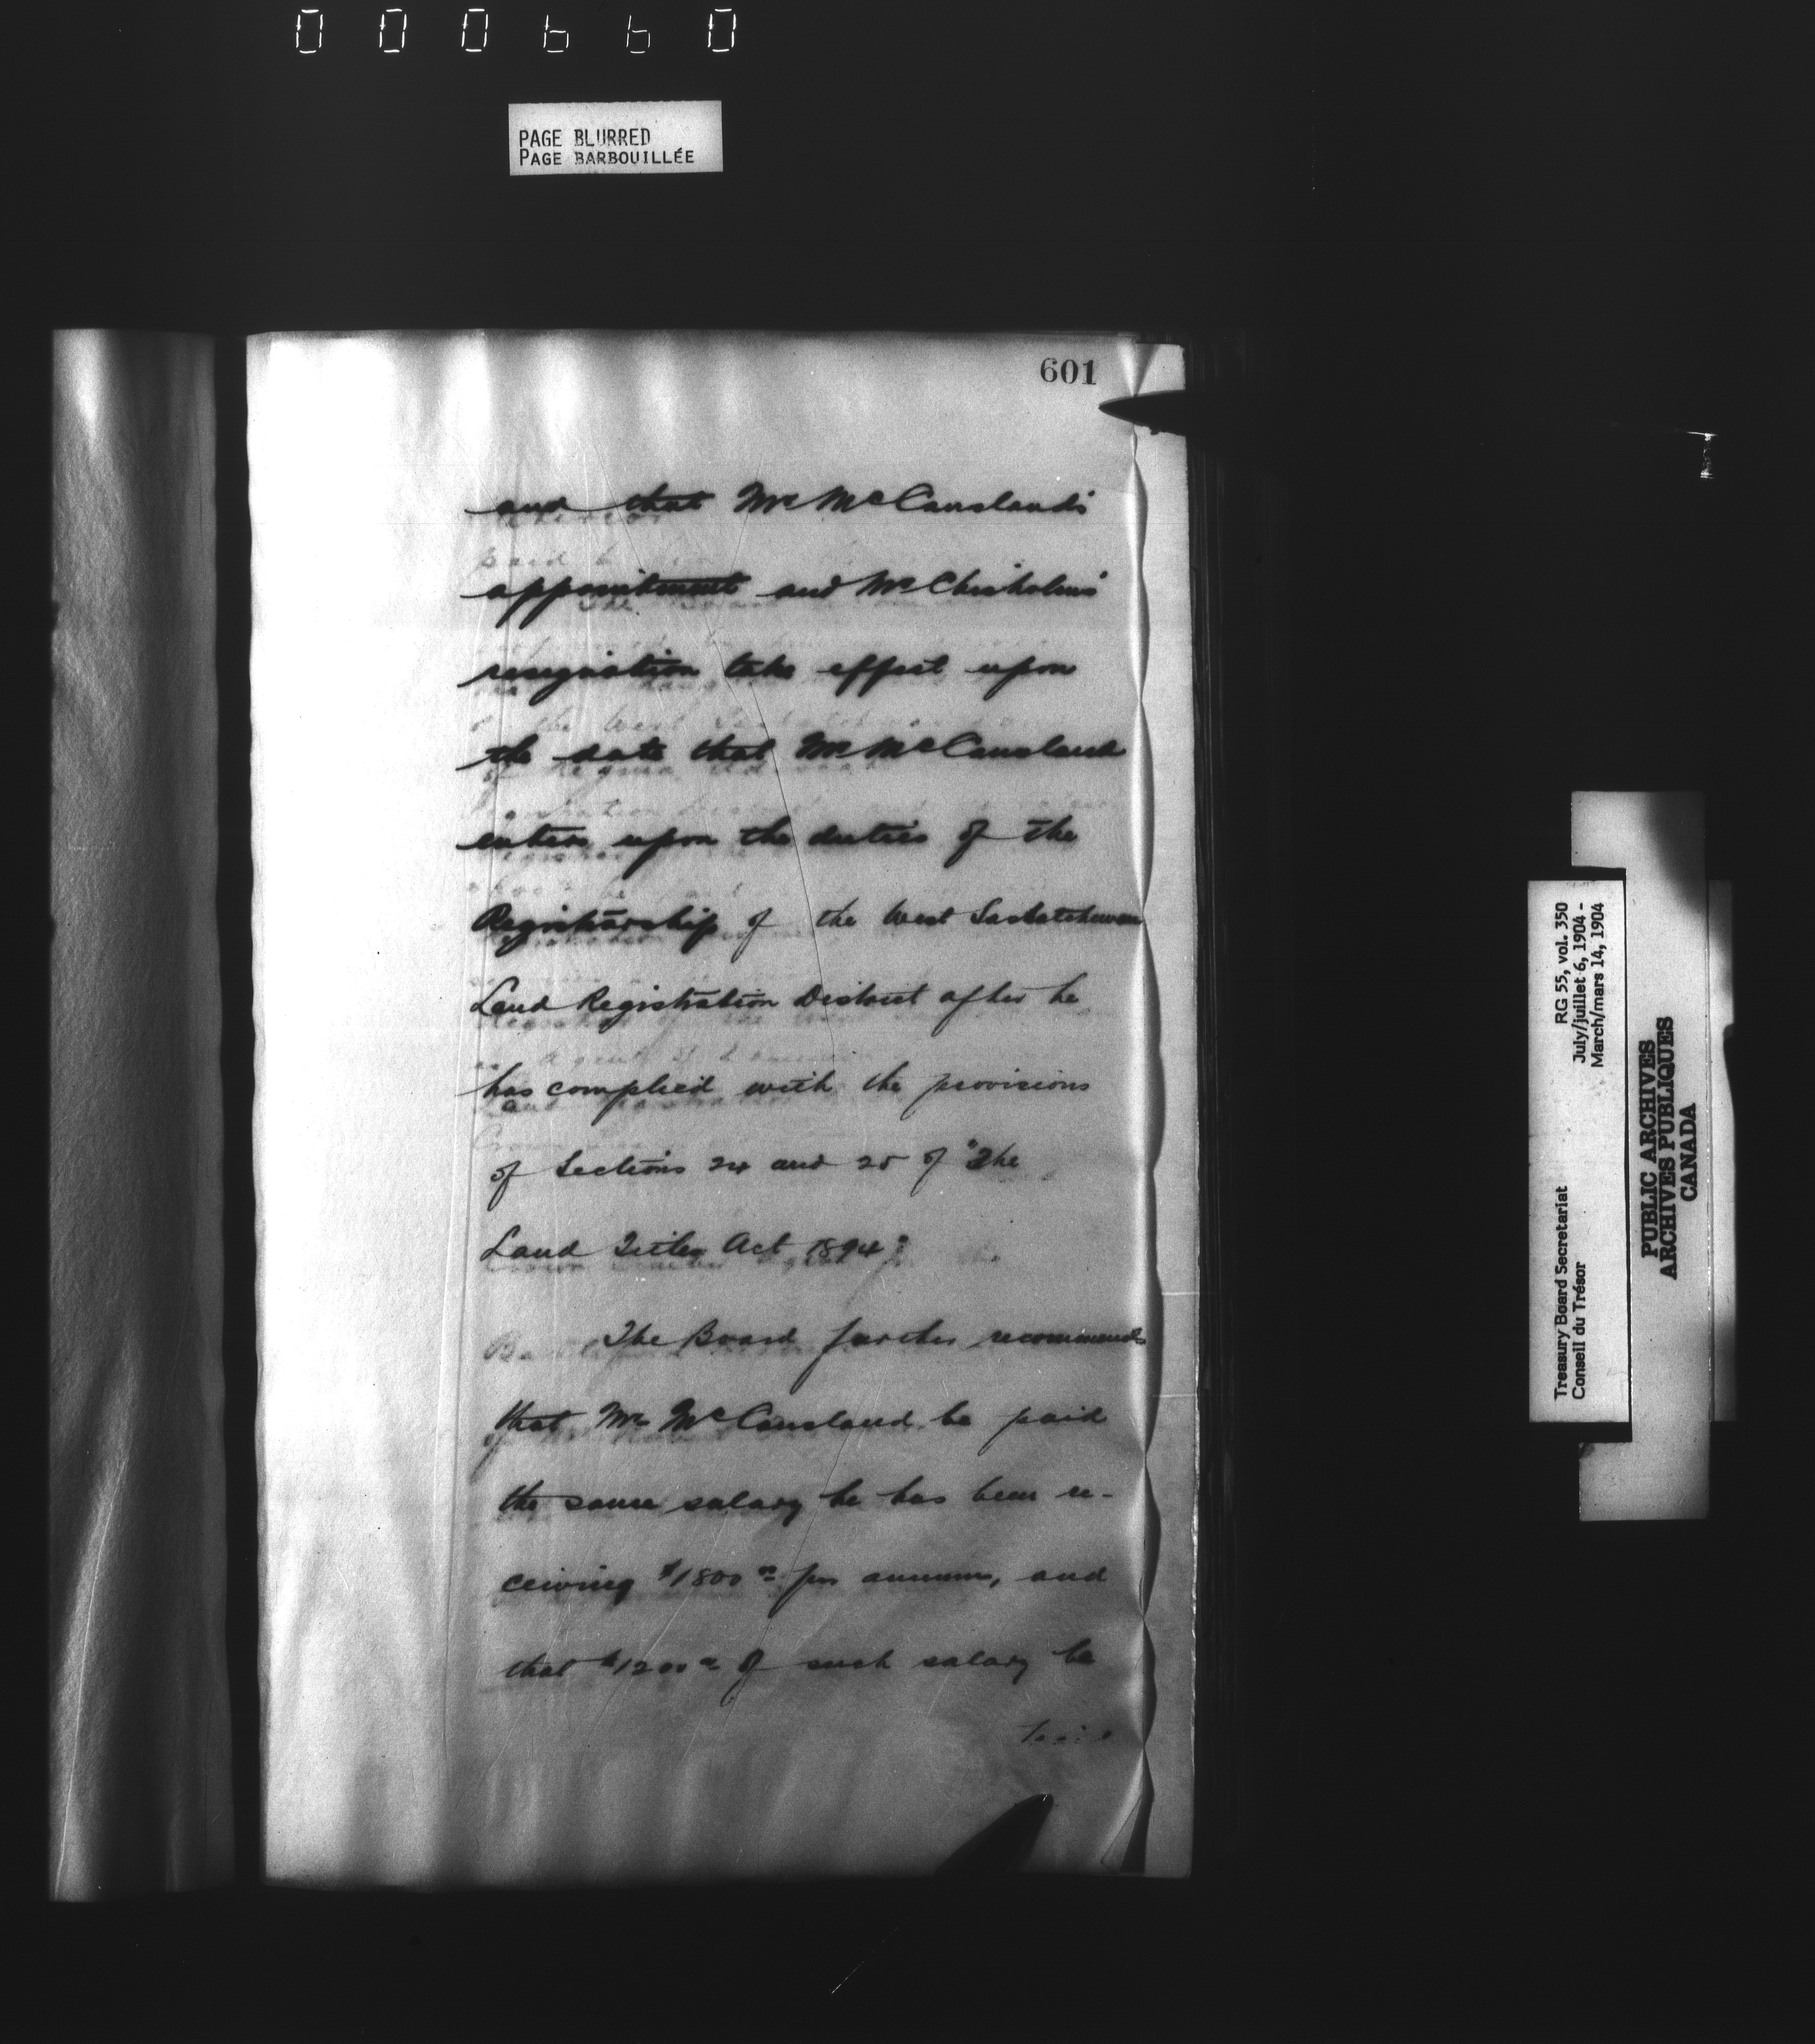 000660
PAGE BLURRED
PAGE BARBOUILLÉE
601
and that Mr McCausland's
appointment and Mr Chisholm's
resignation take effect upon
the date that Mr McCausland
enters upon the duties of the
Registrarship of the West Saskatchewan
Land Registration District after he
has complied with the provisions
of Sections 24 and 25 of "The
Land Titles Act 1894"
The Board further recommends
that Mr McCausland be paid
the same salary he has been re-
ceiving $1800 00 per annum, and
that $1200 00 of such salary be
Treasury Board Secretariat RG 55, vol. 350
Conseil du Trésor July/juillet 6, 1904 -
March/mars 14, 1904
PUBLIC ARCHIVES
ARCHIVES PUBLIQUES
CANADA